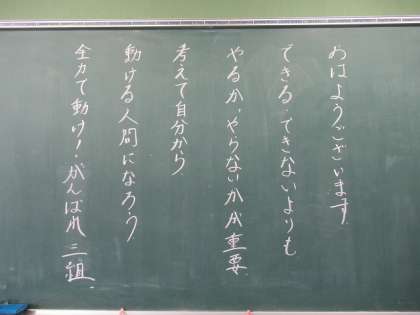 おはようございます
できる・できないよりも
やるか、やらないかが重要
考えて自分から
動ける人間になろう
全力で動け！がんばれ三組